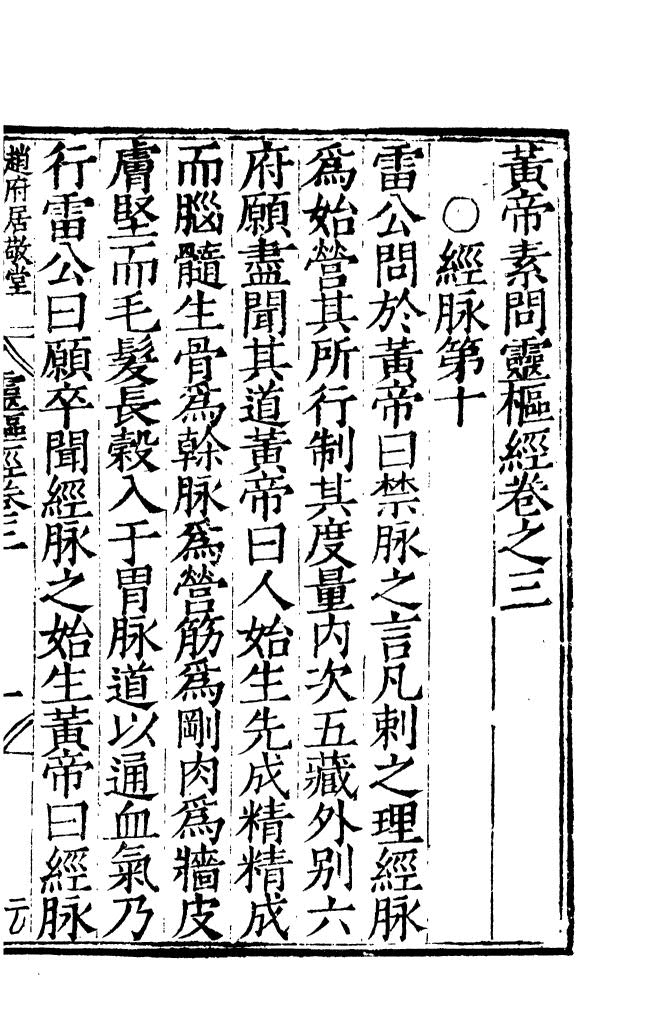 黃帝素問靈樞經卷之三
○經脉第十
雷公問於黃帝曰禁脉之言凡刺之理經脉
爲始營其所行制其度量內次五藏外别六
府願盡聞其道黃帝曰人始生先成精精成
而腦髓生骨爲榦脉爲營筋爲剛肉爲牆皮
膚堅而毛髮長穀入于胃脉道以通血氣乃
行雷公曰願卒聞經脉之始生黃帝曰經脉
趙府居敬堂
靈樞經卷三
一
元